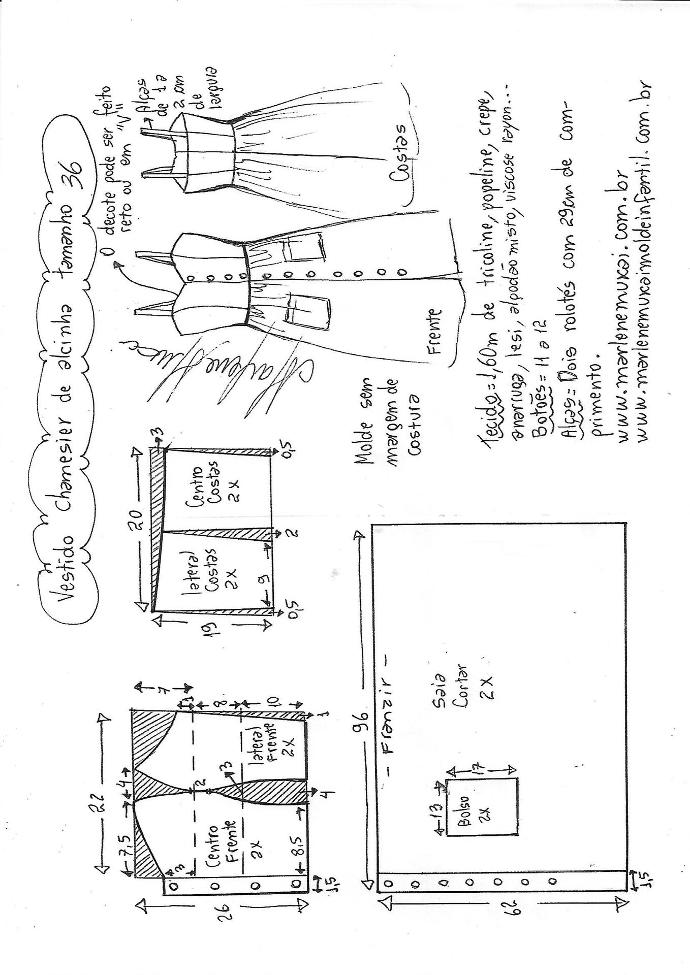 Vestido chamesier de alcinha tamanho 36
O decote pode ser feito
reto ou em "V"
Alças
de 1 a
2 cm
de
largura
Costas
Frente
Molde sem
margem de
costura
Tecido = 1,60m de tricoline, popeline, crepe,
anarruga, lesi, algodão misto, viscose rayon...
Botões = 11 a 12
Alças = Dois rolotés com 29cm de com-
primento.
www.marlenemukai.com.br
www.marlenemukaimoldeinfantil.com.br
20
3
19
lateral
Costas
2x
Centro
Costas
2x
9
0,5
2
0,5
22
7,5
4
7
1
8
10
3
2
3
Centro
Frente
2x
lateral
Frente
2x
26
8,5
4
1
1,5
96
- Franzir -
Saia
Cortar
2x
13
17
Bolso
2x
62
1,5